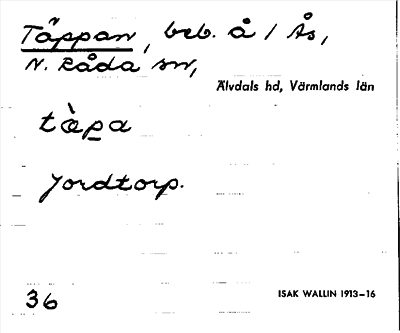 Täppan, beb. å / Ås,
N. Råda sn,
Älvdals hd, Värmlands län
tὰp̠a
Jordtorp.
36
ISAK WALLIN 1913-16